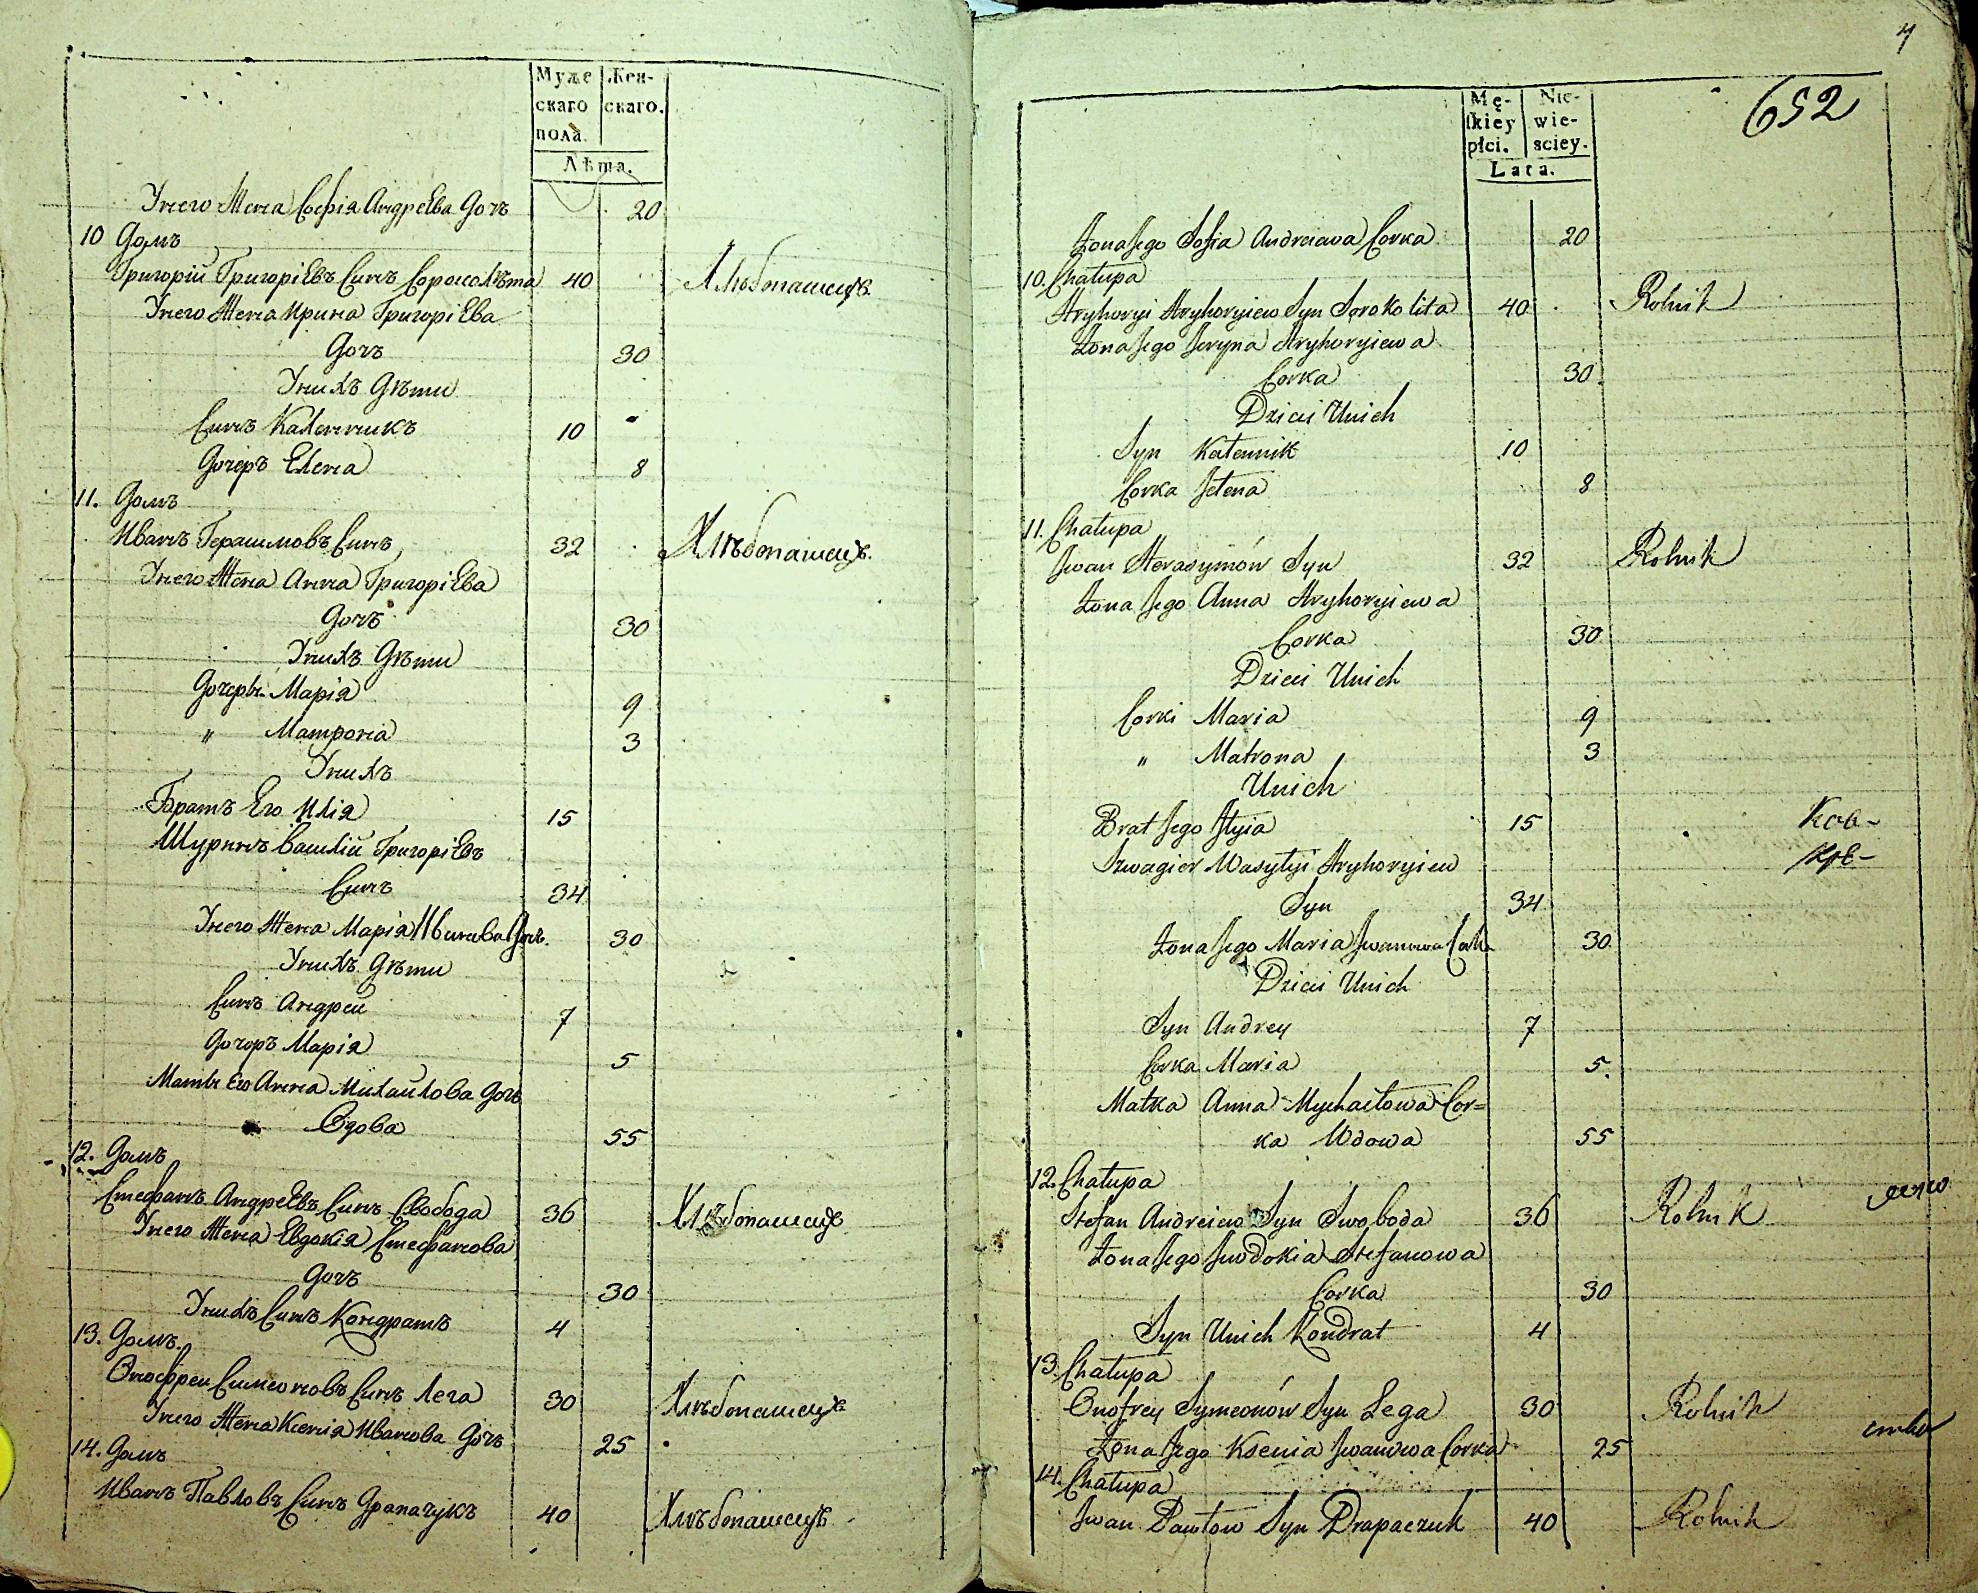 Муже
скаго
пола.
Жен-
скаго.
Лѣта.
Унего Жена Софія Андреева Дочъ 20
10 Домъ
Григорій Григоріевъ Синъ Сороколѣта 40 Хлѣбопашецъ.
Унего Жена Ирина Григоріева
Дочъ 30
Унихъ Дѣти
Синъ Каленникъ 10
Дочеръ Елена 8
11. Домъ
Иванъ Герасимовъ Синъ 32 Хлѣбопашецъ.
Унего Жена Анна Григоріева
Дочъ 30
Унихъ Дѣти
Дочеры Марія 9
" Матрона 3
Унихъ
Братъ Его Илія 15
Шуринъ Василій Григоріевъ
Синъ 34
Унего Жена Марія Иванова Дочъ. 30
Унихъ Дѣти
Синъ Андрей 7
Дочеръ Марія 5
Мать Его Анна Михайлова Дочъ
Вдова 55
12. Домъ
Стефанъ Андреевъ Синъ Свобода 36 Хлѣбопашецъ
Унего Жена Евдокія Стефанова
Дочъ 30
Унихъ Синъ Кондратъ 4
13. Домъ.
Онофреи Симеоновъ Синъ Лега 30 Хлѣбопашецъ
Унего Жена Ксенія Иванова Дочъ 25
14. Домъ
Иванъ Павловъ Синъ Драпачукъ 40 Хлѣбопашецъ
4
652
Mę-
skiey
płci.
Nie-
wie-
sciey.
Lata.
Żona Jego Sofia Andreiawa Corka 20
10. Chałupa
Hryhoryi Hryhoryiew Syn Sorokolita 40 Rolnik
Żona Jego Jeryna Hryhoryiewa
Corka 30.
Dzieci Unich
Syn Kałennik 10
Corka Jełena 8
11. Chałupa
Jwan Herasymów Syn 32 Rolnik
Żona Jego Anna Hryhoryiewa
Corka 30
Dzieci Unich
Corki Maria 9
" Matrona 3
Unich
Brat Jego Jłyia 15
Szwagier Wasylyi Hryhoryiew
Syn 34
Żona Jego Maria Jwanowa Corka 30
Dzieci Unich
Syn Andrey 7
Corka Maria 5.
Matka Anna Mychaełowa Cor=
ka Wdowa 55
12. Chałupa
Stefan Andreiew Syn Swoboda 36 Rolnik
Żona Jego Jewdokia Stefanowa
Corka 30
Syn Unich Kondrat 4
13. Chałupa
Onofrey Symeonów Syn Lega 30 Rolnik
Żona Jego Ksenia Jwanowa Corka 25
14. Chałupa
Jwan Pawłow Syn Drapaczuk 40 Rolnik